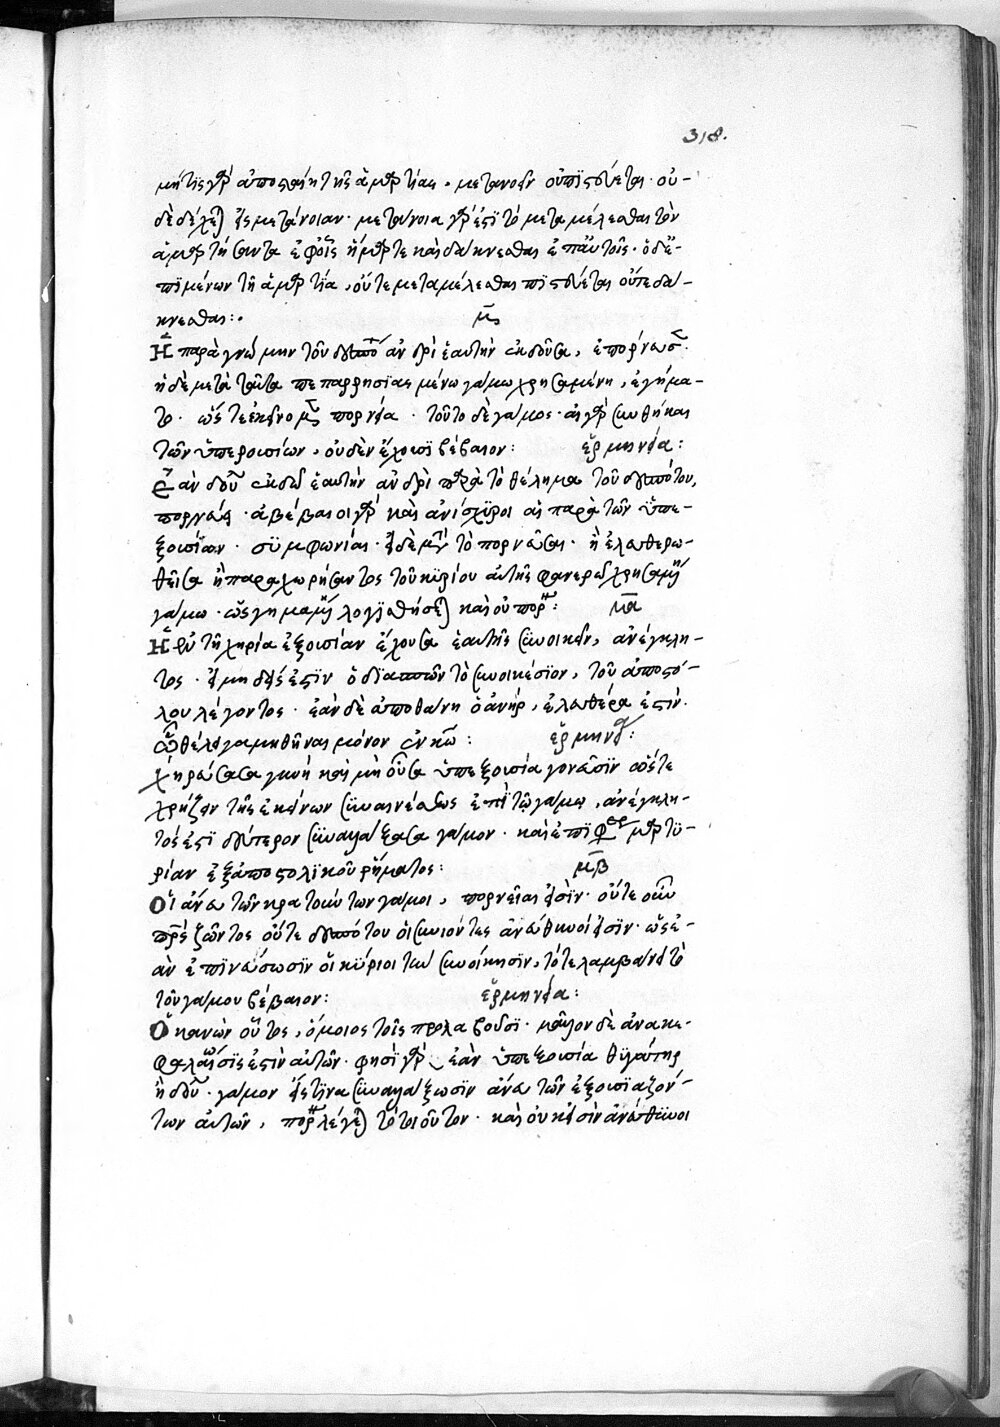 318.
μή τις γὰρ ἀποσταίη τῆς ἁμαρτίας. μετανοεῖν οὐ πιστεύεται· οὐ-
δὲ δέχεται εἰς μετάνοιαν· μετάνοια γάρ ἐστι τὸ μεταμέλεσθαι τὸν
ἁμαρτήσαντα ἐφ' οἷς ἥμαρτε καὶ δάκνεσθαι ἐπ' αὐτοῖς· ὁ δὲ ἐ-
πιμένων τῇ ἁμαρτία, οὔτε μεταμέλεσθαι πιστεύεται οὔτε δά-
κνεσθαι:· μ
Ἡ παρὰ γνώμην τοῦ δεσπότου ἀνδρὶ ἑαυτὴν ἐκδοῦσα, ἐπόρνευσεν·
ἡ δὲ μετὰ ταῦτα πεπαρρησιασμένω γάμω χρησαμένη, ἐγήμα-
το· ὥστε ἐκεῖνο μὲν πορνεία· τοῦτο δὲ γάμος· αἱ γὰρ συνθῆκαι
τῶν ὑπεξουσίων, οὐδὲν ἔχουσι βέβαιον: ἑρμηνεία:
Ἐὰν δούλη ἐκδῶ ἑαυτὴν ἀνδρὶ παρὰ τὸ θέλημα τοῦ δεσπότου,
πορνεύει· ἀβέβαιοι γὰρ καὶ ἀνίσχυροι αἱ παρὰ τῶν ὑπε-
ξουσίων· συμφωνίαι· εἰ δὲ μετὰ τὸ πορνεῦσαι· ἢ ἐλευθερω-
θεῖσα ἢ παραχωρήσαντος τοῦ κυρίου αὐτῆς φανερῶ χρήσαμένη
γάμω· ὡς γημαμένη λογισθήσεται καὶ οὐ πόρνη: μα
Ἡ ἐν τῇ χηρία ἐξουσίαν ἔχουσα ἑαυτῆς συνοικεῖν, ἀνέγκλη-
τος· εἰ μηδείς ἐστιν ὁ διασπῶν τὸ συνοικέσιον, τοῦ ἀποστό-
λου λέγοντος· ἐὰν δὲ ἀποθάνη ὁ ἀνήρ, ἐλευθέρα ἐστὶν·
ᾧ θέλει γαμηθῆναι μόνον ἐν κῶ: ἑρμηνεία:
Χηρεύσασα γυνὴ καὶ μὴ οὖσα ὑπεξουσία γονεῦσιν ὥστε
χρήζειν τῆς ἐκείνων συναινέσεως ἐπὶ τῷ γάμω, ἀνέγκλη-
τός ἐστι δεύτερον συναλλάξασα γάμον· καὶ ἐπι φέρει μαρτυ-
ρίαν ἐξ ἀποστολικοῦ ῥήματος: μβ
Οἱ ἄνευ τῶν κρατούντων γάμοι, πορνεῖαι εἰσὶν· οὔτε οὖν
πατρὸς ζῶντος οὔτε δεσπότου οἱ συνιόντες ἀνεύθυνοί εἰσιν· ὡς ἐ-
ὰν ἐπινεύσωσιν οἱ κύριοι τὴν συνοίκησιν, τότε λαμβάνει τὸ
τοῦ γάμου βέβαιον: ἑρμηνεία:
Ὁ κανὼν οὗτος, ὅμοιος τοῖς προλαβοῦσι· μᾶλλον δὲ ἀνακε-
φαλαίωσίς ἐστιν αὐτῶν· φησὶ γὰρ ἐὰν ὑπεξουσία θυγάτηρ
ἢ δούλη· γάμον εἴς τινα συναλλάξωσιν ἄνευ τῶν ἐξουσιαζόν-
των αὐτῶν, πορνεία λέγεται τὸ τοιοῦτον· καὶ οὐκ εἰσὶν ἀνεύθυνοι